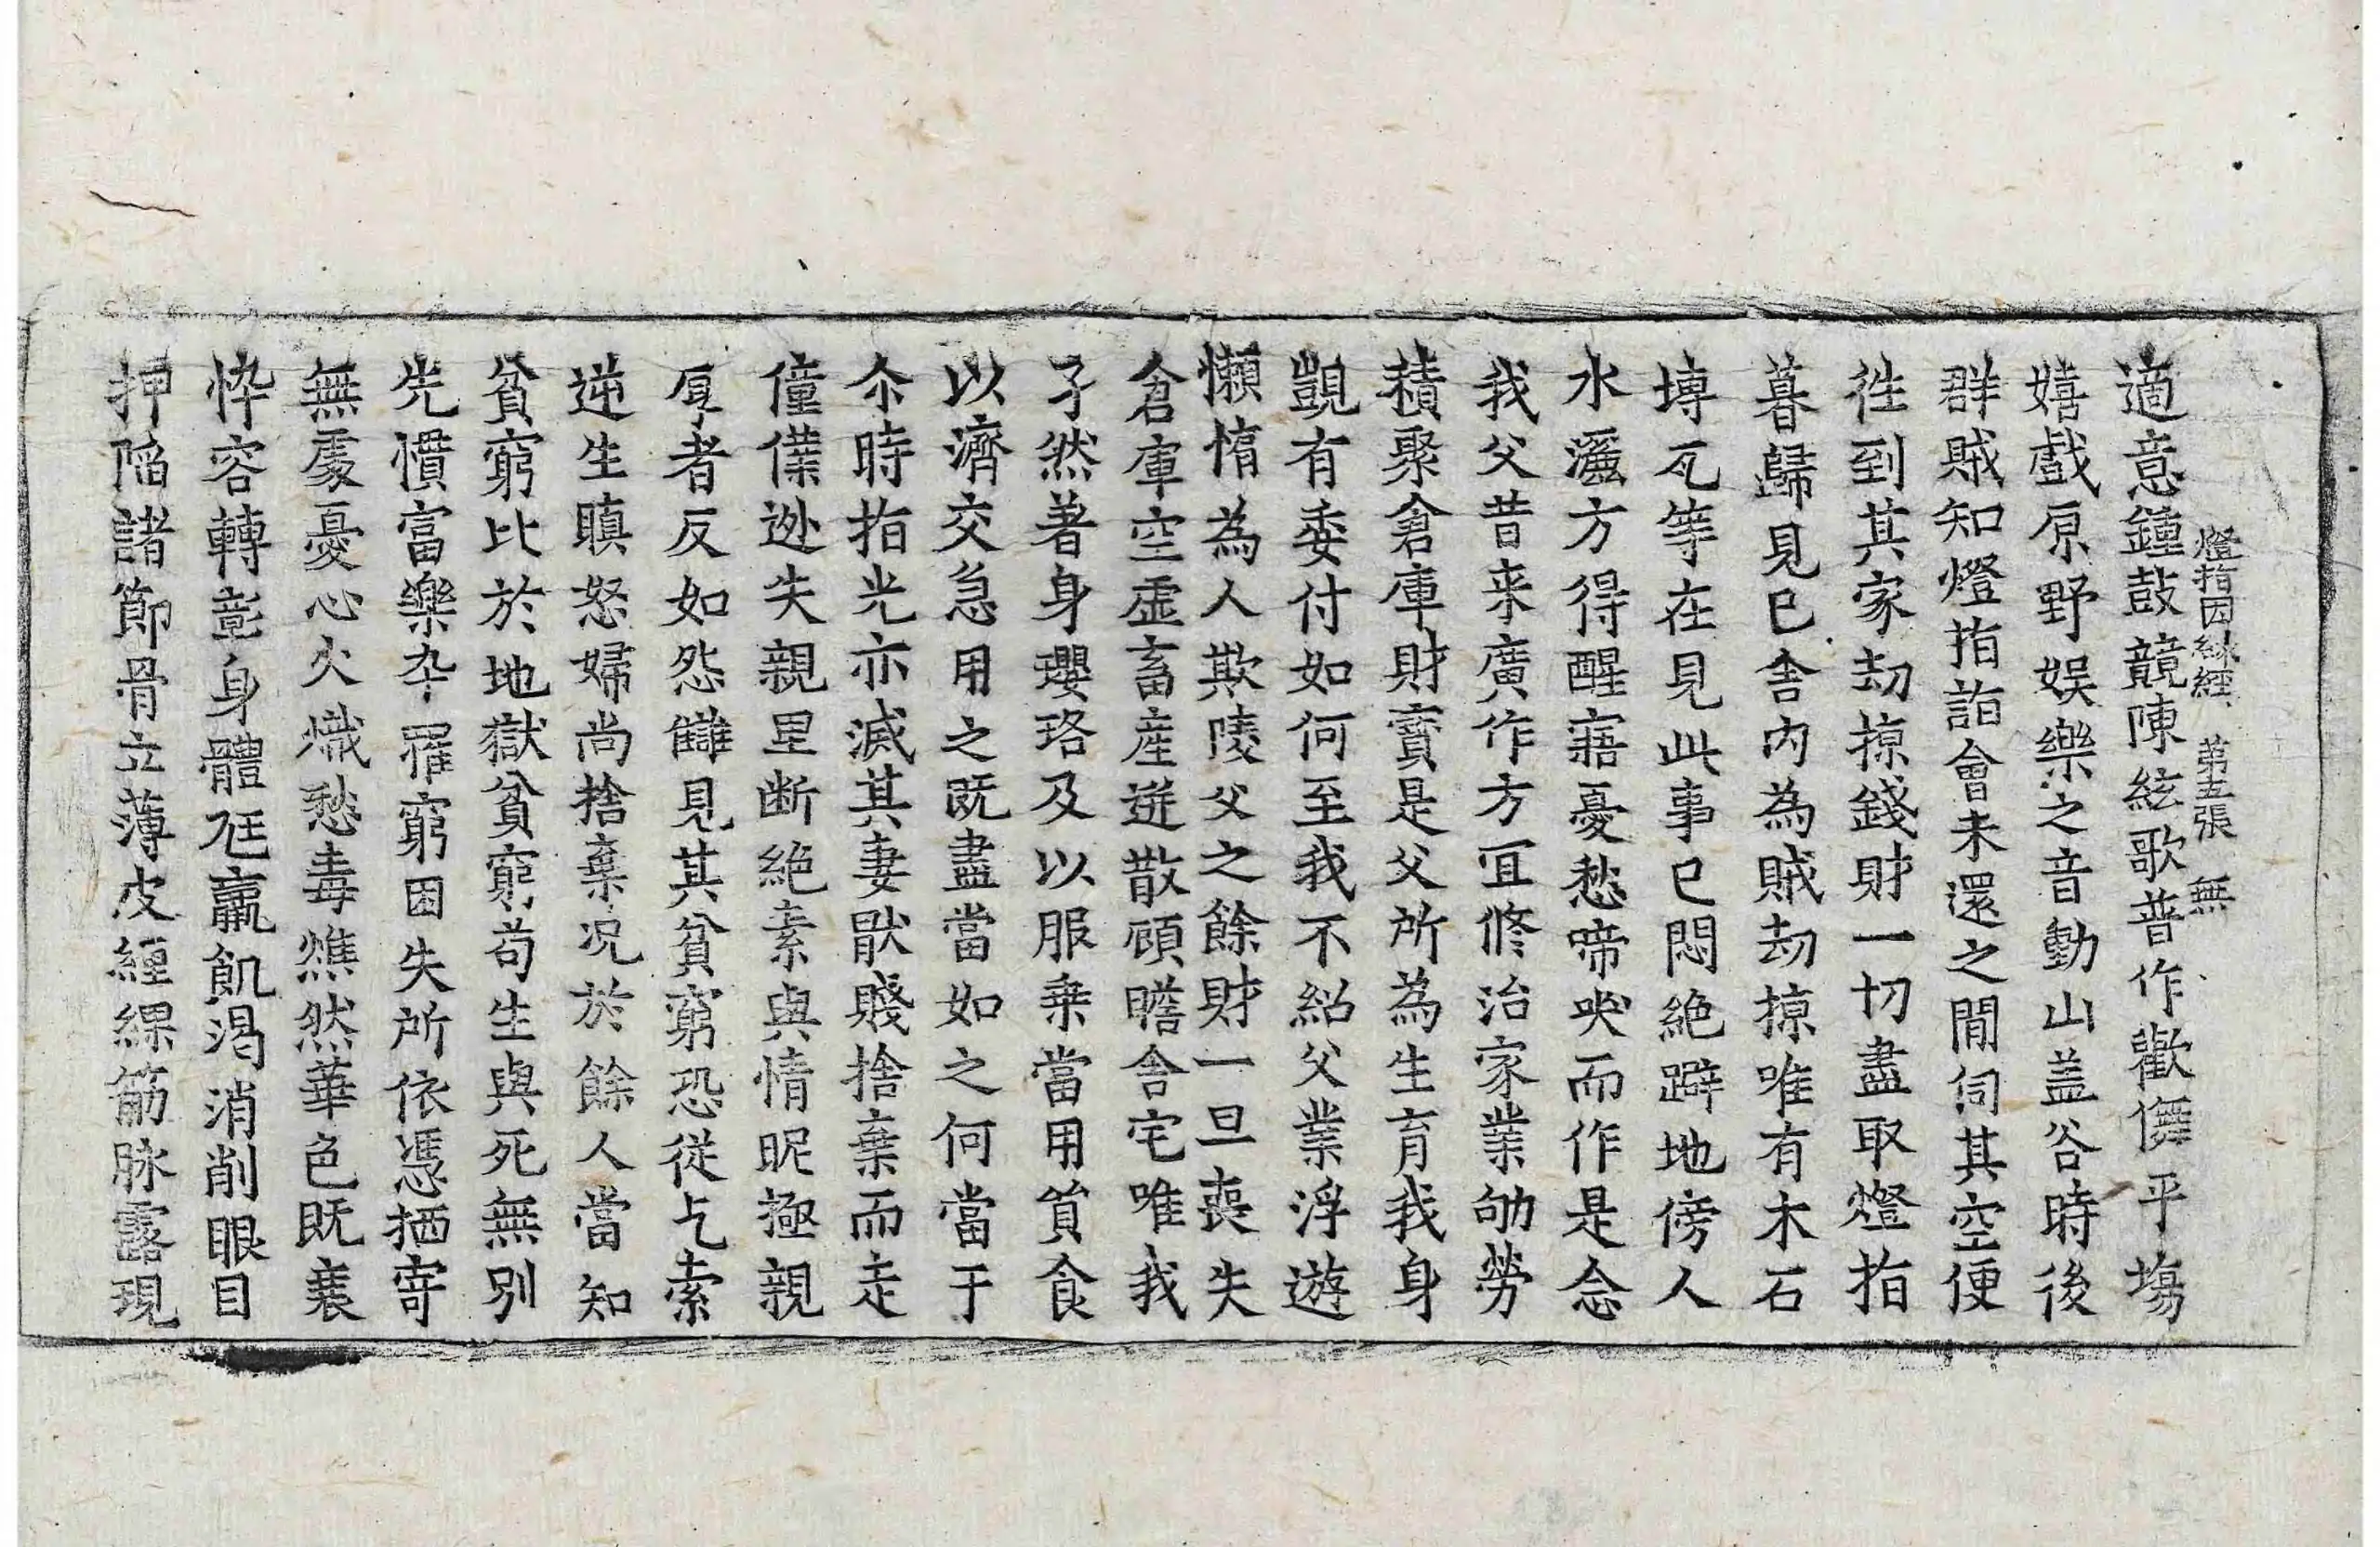 燈指因緣經 第五張 無
適意鍾鼓競陳絃歌普作歡儛平塲
嬉戲原野娛樂之音動山盖谷時後
群賊知燈指詣會未還之閒伺其空便
徃到其家劫掠錢財一切盡取燈指
暮歸見已舍內為賊劫掠唯有木石
塼瓦等在見此事已悶絕躃地傍人
水灑方得醒寤憂愁啼哭而作是念
我父昔来廣作方冝修治家業劬勞
積聚倉庫財寶是父所為生育我身
覬有委付如何至我不紹父業浮遊
懶惰為人欺陵父之餘財一旦喪失
倉庫空虛畜產迸散顧瞻舍宅唯我
孑然著身瓔珞及以服乗當用貿食
以濟交急用之既盡當如之何當于
尒時指光亦滅其妻猒賤捨棄而走
僮僕逃失親里断絕素與情昵極親
厚者反如怨讎見其貧窮恐從乞索
逆生瞋怒婦尚捨棄况於餘人當知
貧窮比於地獄貧窮苟生與死無別
先慣富樂卒罹窮困失所依憑栖寄
無處憂心火熾愁毒燋然華色既衰
悴容轉彰身體尫羸飢渴消削眼目
押陷諸節骨立薄皮纏綶筋脉露現